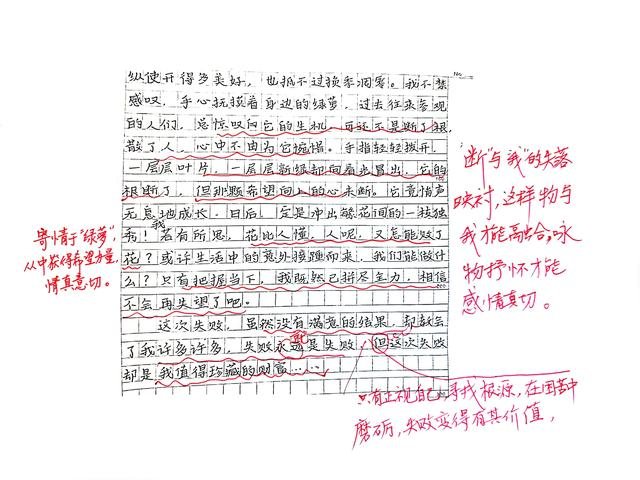 纵使开得多美好，也抵不过换季凋零。我不禁
感叹，手心抚摸着身边的绿萝，过去往来参观
的人们，总惊叹向它的生机，可还不是断了根，
散了人，心中不由为它惋惜。手指轻轻拨开
一层层叶片，一层层新绿却向着光冒出，它的
根断了，但那颗希望向上的心未断。它竟悄声
无息地成长，日后一定是冲出繁花间的一枝独
秀！我若有所思，花比人懂，人呢，又怎能败了
花？或许生活中的意外接踵而来，我们能做什
么？只有把握当下，我既然已拼尽全力，相信
不会再失望了吧。
这次失败，虽然没有满意的结果，却教会
了我许多许多，失败永远是失败，但这次失败
却是我值得珍藏的财富……
寄情于“绿萝”，
从中获得希望力量，
情真意切。
“断”与“我”的失落
映衬，这样物与
我才能高融合，咏
物抒怀才能
感情真切。
只有正视自己，寻找根源，在困苦中
磨砺，失败变得有其价值，